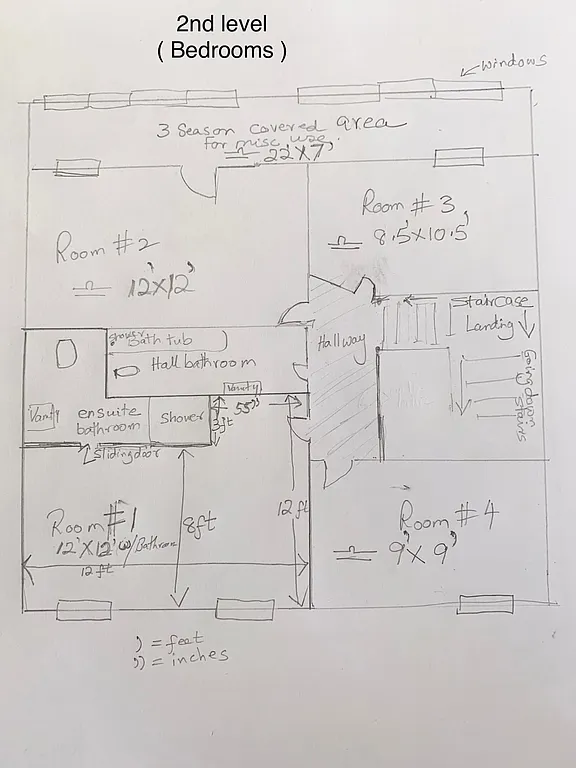 2nd level
( Bedrooms )
windows
3 Season covered area
For misc use.
≏ 22'X7'
Room # 3
≏ 8.5'X10.5'
Room #2
≏ 12'X12'
Staircase
Landing
Going down
Stairs
Hallway
shower
Bath tub
Hall bathroom
Vanity
Vanity
ensuite
bathroom
Shover
3ft
55"
Slidingdoor
Room #1
12'X12' w/Bathroom
12 ft
8ft
12 ft
Room # 4
≏ 9'X 9'
) = feet
)) = inches